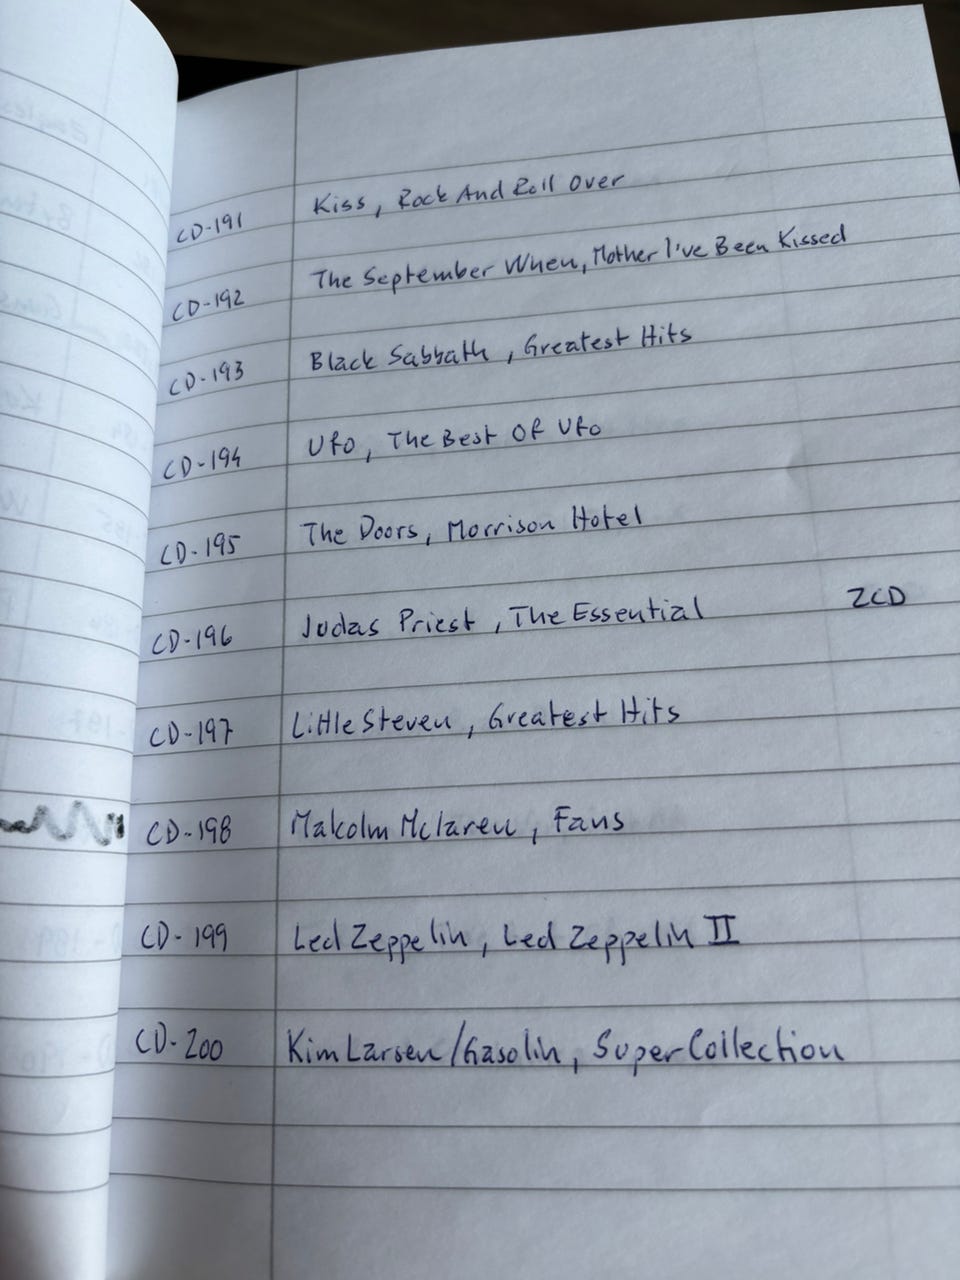 CD-191 Kiss, Rock And Roll Over
CD-192 The September When, Mother I've Been Kissed
CD-193 Black Sabbath, Greatest Hits
CD-194 Ufo, The Best Of Ufo
CD-195 The Doors, Morrison Hotel
CD-196 Judas Priest, The Essential 2CD
CD-197 Little Steven, Greatest Hits
CD-198 Malcolm Mclaren, Fans
CD-199 Led Zeppelin, Led Zeppelin II
CD-200 Kim Larsen/Gasolin, Super Collection